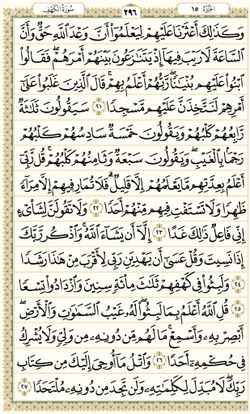 الجزء ١٥ ٢٩٦ سورة الكهف
وَكَذَٰلِكَ أَعْثَرْنَا عَلَيْهِمْ لِيَعْلَمُوٓا۟ أَنَّ وَعْدَ ٱللَّهِ حَقٌّ وَأَنَّ
ٱلسَّاعَةَ لَا رَيْبَ فِيهَآ إِذْ يَتَنَٰزَعُونَ بَيْنَهُمْ أَمْرَهُمْ فَقَالُوا۟
ٱبْنُوا۟ عَلَيْهِم بُنْيَٰنًا رَّبُّهُمْ أَعْلَمُ بِهِمْ قَالَ ٱلَّذِينَ غَلَبُوا۟ عَلَىٰٓ
أَمْرِهِمْ لَنَتَّخِذَنَّ عَلَيْهِم مَّسْجِدًا ٢١ سَيَقُولُونَ ثَلَٰثَةٌ
رَّابِعُهُمْ كَلْبُهُمْ وَيَقُولُونَ خَمْسَةٌ سَادِسُهُمْ كَلْبُهُمْ
رَجْمًۢا بِٱلْغَيْبِ وَيَقُولُونَ سَبْعَةٌ وَثَامِنُهُمْ كَلْبُهُمْ قُل رَّبِّىٓ
أَعْلَمُ بِعِدَّتِهِم مَّا يَعْلَمُهُمْ إِلَّا قَلِيلٌ فَلَا تُمَارِ فِيهِمْ إِلَّا مِرَآءً
ظَٰهِرًا وَلَا تَسْتَفْتِ فِيهِم مِّنْهُمْ أَحَدًا ٢٢ وَلَا تَقُولَنَّ لِشَا۟ىْءٍ
إِنِّى فَاعِلٌ ذَٰلِكَ غَدًا ٢٣ إِلَّآ أَن يَشَآءَ ٱللَّهُ وَٱذْكُر رَّبَّكَ
إِذَا نَسِيتَ وَقُلْ عَسَىٰٓ أَن يَهْدِيَنِ رَبِّى لِأَقْرَبَ مِنْ هَٰذَا رَشَدًا
٢٤ وَلَبِثُوا۟ فِى كَهْفِهِمْ ثَلَٰثَ مِا۟ئَةٍ سِنِينَ وَٱزْدَادُوا۟ تِسْعًا
٢٥ قُلِ ٱللَّهُ أَعْلَمُ بِمَا لَبِثُوا۟ لَهُۥ غَيْبُ ٱلسَّمَٰوَٰتِ وَٱلْأَرْضِ
أَبْصِرْ بِهِۦ وَأَسْمِعْ مَا لَهُم مِّن دُونِهِۦ مِن وَلِىٍّ وَلَا يُشْرِكُ
فِى حُكْمِهِۦٓ أَحَدًا ٢٦ وَٱتْلُ مَآ أُوحِىَ إِلَيْكَ مِن كِتَابِ
رَبِّكَ لَا مُبَدِّلَ لِكَلِمَٰتِهِۦ وَلَن تَجِدَ مِن دُونِهِۦ مُلْتَحَدًا ٢٧